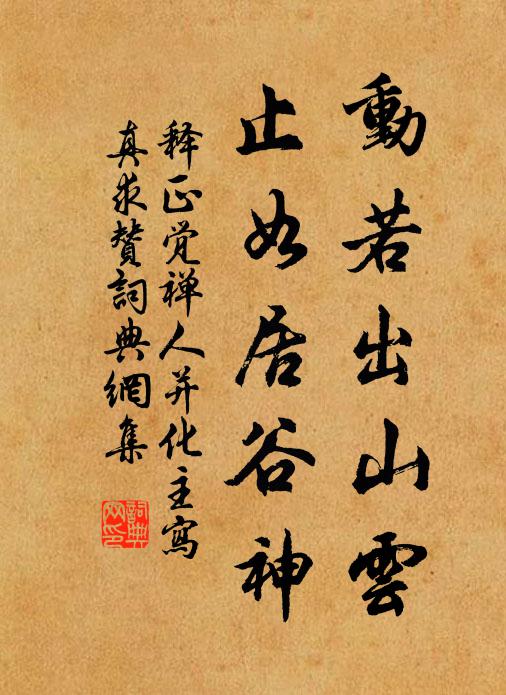 動若出山雲
止如居谷神
释正觉禅人并化主寫
真求贊詞典網集
詞典网印